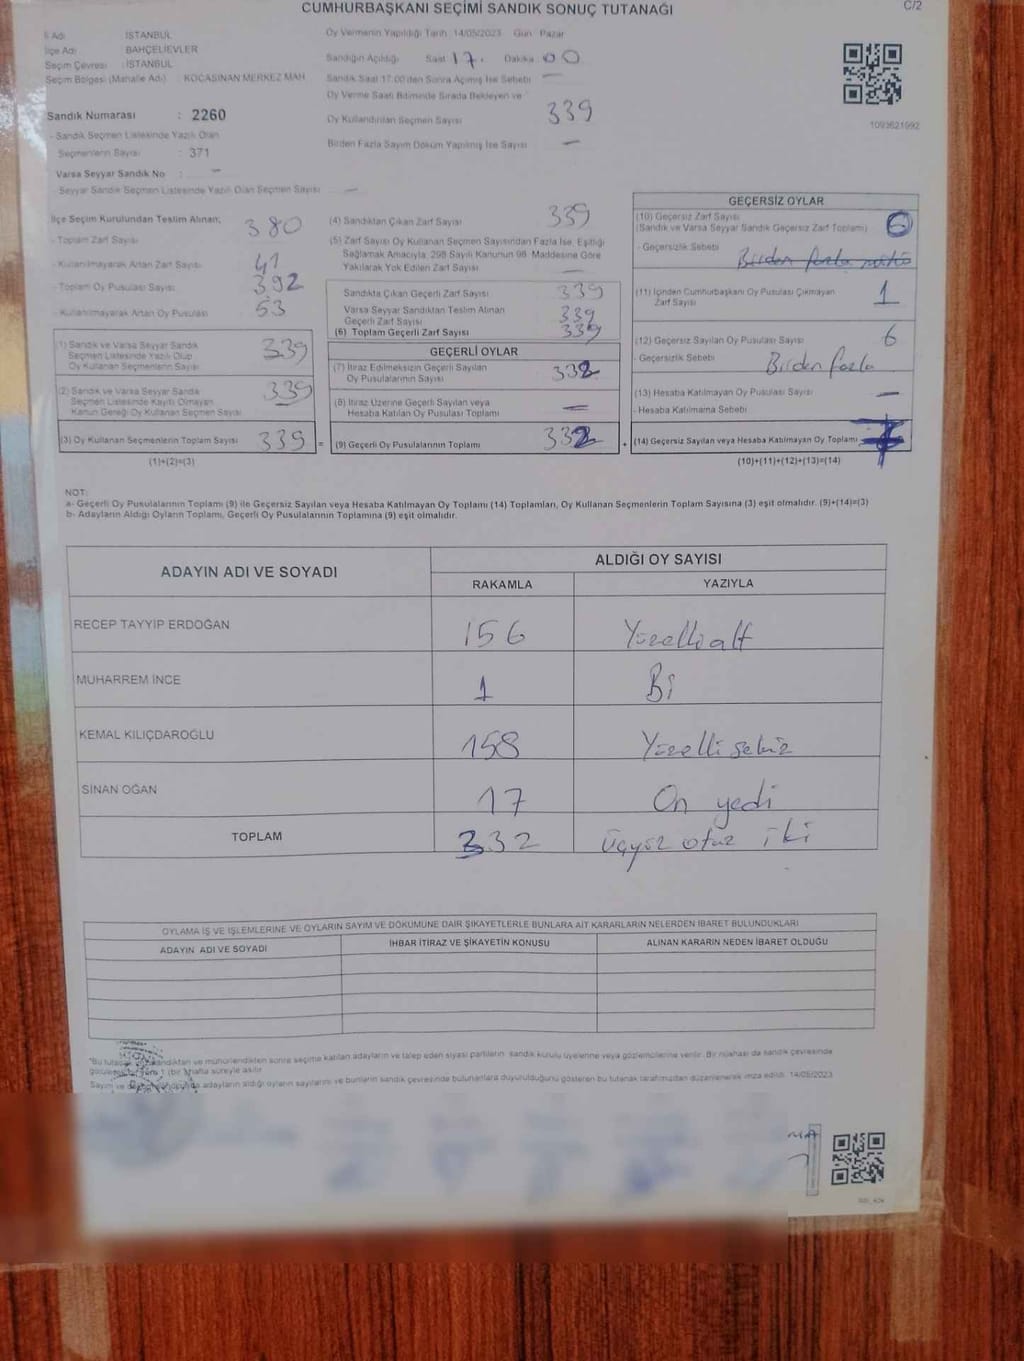 CUMHURBAŞKANI SEÇİMİ SANDIK SONUÇ TUTANAĞI
C/2
İl Adı : İSTANBUL
İlçe Adı : BAHÇELİEVLER
Seçim Çevresi : İSTANBUL
Seçim Bölgesi (Mahalle Adı) : KOCASİNAN MERKEZ MAH
Sandık Numarası : 2260
- Sandık Seçmen Listesinde Yazılı Olan
Seçmenlerin Sayısı : 371
Varsa Seyyar Sandık No : -
- Seyyar Sandık Seçmen Listesinde Yazılı Olan Seçmen Sayısı : -
Oy Vermenin Yapıldığı Tarih :14/05/2023 Gün : Pazar
Sandığın Açıldığı Saat 17. Dakika 00
Sandık Saat 17:00'den Sonra Açılmış İse Sebebi : -
Oy Verme Saati Bitiminde Sırada Bekleyen ve
Oy Kullandırılan Seçmen Sayısı 339
Birden Fazla Sayım Döküm Yapılmış İse Sayısı -
1093621992
İlçe Seçim Kurulundan Teslim Alınan;
- Toplam Zarf Sayısı 380
- Kullanılmayarak Artan Zarf Sayısı 41
- Toplam Oy Pusulası Sayısı 392
- Kullanılmayarak Artan Oy Pusulası 53
(1) Sandık ve Varsa Seyyar Sandık
Seçmen Listesinde Yazılı Olup
Oy Kullanan Seçmenlerin Sayısı 339
(2) Sandık ve Varsa Seyyar Sandık
Seçmen Listesinde Kayıtlı Olmayan
Kanun Gereği Oy Kullanan Seçmen Sayısı 339
(3) Oy Kullanan Seçmenlerin Toplam Sayısı 339 =
(1)+(2)=(3)
(4) Sandıktan Çıkan Zarf Sayısı 339
(5) Zarf Sayısı Oy Kullanan Seçmen Sayısından Fazla İse, Eşitliği
Sağlamak Amacıyla, 298 Sayılı Kanunun 98. Maddesine Göre
Yakılarak Yok Edilen Zarf Sayısı -
Sandıkta Çıkan Geçerli Zarf Sayısı 339
Varsa Seyyar Sandıktan Teslim Alınan
Geçerli Zarf Sayısı 339
(6) Toplam Geçerli Zarf Sayısı 339
GEÇERLİ OYLAR
(7) İtiraz Edilmeksizin Geçerli Sayılan
Oy Pusulalarının Sayısı 332
(8) İtiraz Üzerine Geçerli Sayılan veya
Hesaba Katılan Oy Pusulası Toplamı -
(9) Geçerli Oy Pusulalarının Toplamı 332 +
GEÇERSİZ OYLAR
(10) Geçersiz Zarf Sayısı
(Sandık ve Varsa Seyyar Sandık Geçersiz Zarf Toplamı)
- Geçersizlik Sebebi Birden fazla
(11) İçinden Cumhurbaşkanı Oy Pusulası Çıkmayan
Zarf Sayısı 1
(12) Geçersiz Sayılan Oy Pusulası Sayısı 6
- Geçersizlik Sebebi Birden fazla
(13) Hesaba Katılmayan Oy Pusulası Sayısı -
- Hesaba Katılmama Sebebi
(14) Geçersiz Sayılan veya Hesaba Katılmayan Oy Toplamı 7
(10)+(11)+(12)+(13)=(14)
NOT:
a- Geçerli Oy Pusulalarının Toplamı (9) ile Geçersiz Sayılan veya Hesaba Katılmayan Oy Toplamı (14) Toplamları, Oy Kullanan Seçmenlerin Toplam Sayısına (3) eşit olmalıdır. (9)+(14)=(3)
b- Adayların Aldığı Oyların Toplamı, Geçerli Oy Pusulalarının Toplamına (9) eşit olmalıdır.
ADAYIN ADI VE SOYADI
ALDIĞI OY SAYISI
RAKAMLA YAZIYLA
RECEP TAYYİP ERDOĞAN 156 Yüzellialt
MUHARREM İNCE 1 Bi
KEMAL KILIÇDAROĞLU 158 Yüzelli sekiz
SİNAN OĞAN 17 On yedi
TOPLAM 332 üçyüz otuz iki
OYLAMA İŞ VE İŞLEMLERİNE VE OYLARIN SAYIM VE DÖKÜMÜNE DAİR ŞİKAYETLERLE BUNLARA AİT KARARLARIN NELERDEN İBARET BULUNDUKLARI
ADAYIN ADI VE SOYADI İHBAR İTİRAZ VE ŞİKAYETİN KONUSU ALINAN KARARIN NEDEN İBARET OLDUĞU
ve mühürlendikten sonra seçime katılan adayların ve talep eden siyasi partilerin sandık kurulu üyelerine veya gözlemcilerine verilir. Bir nüshası da sandık çevresinde
1 (bir) hafta süreyle asılır.
Sayım ve adayların aldığı oyların sayılarını ve bunların sandık çevresinde bulunanlara duyurulduğunu gösteren bu tutanak tarafımızdan düzenlenerek imza edildi. 14/05/2023